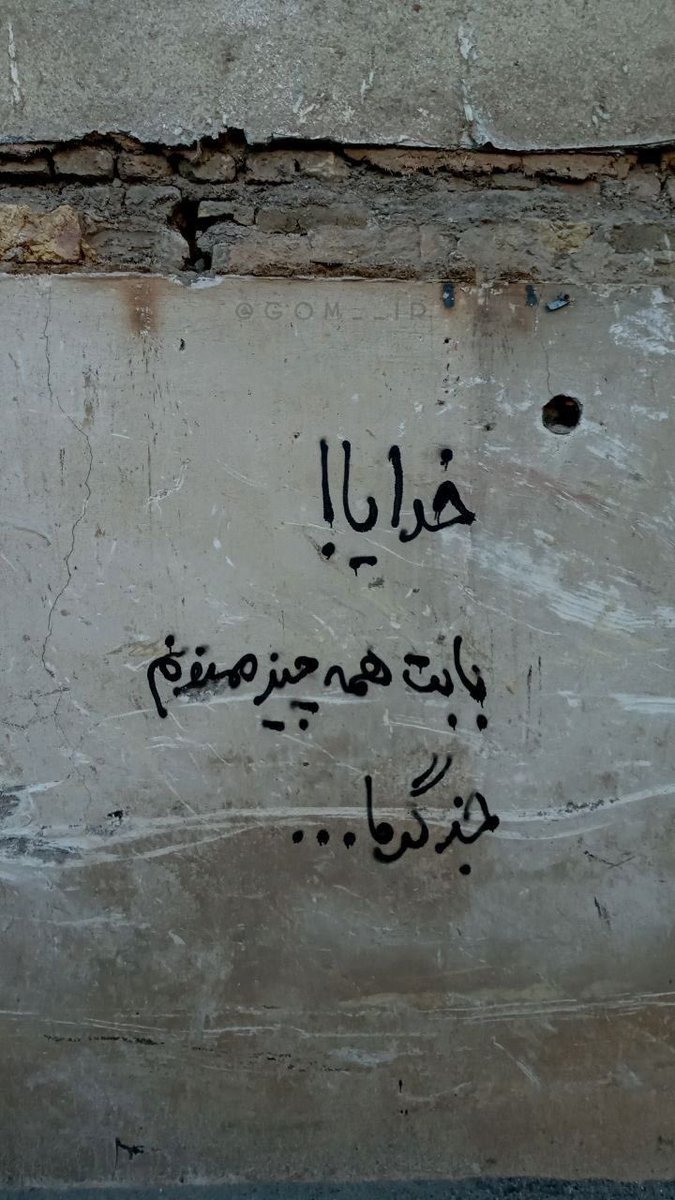 @GOM__ID
خدایا!
بابت همه چیز ممنونم
جز گرما...